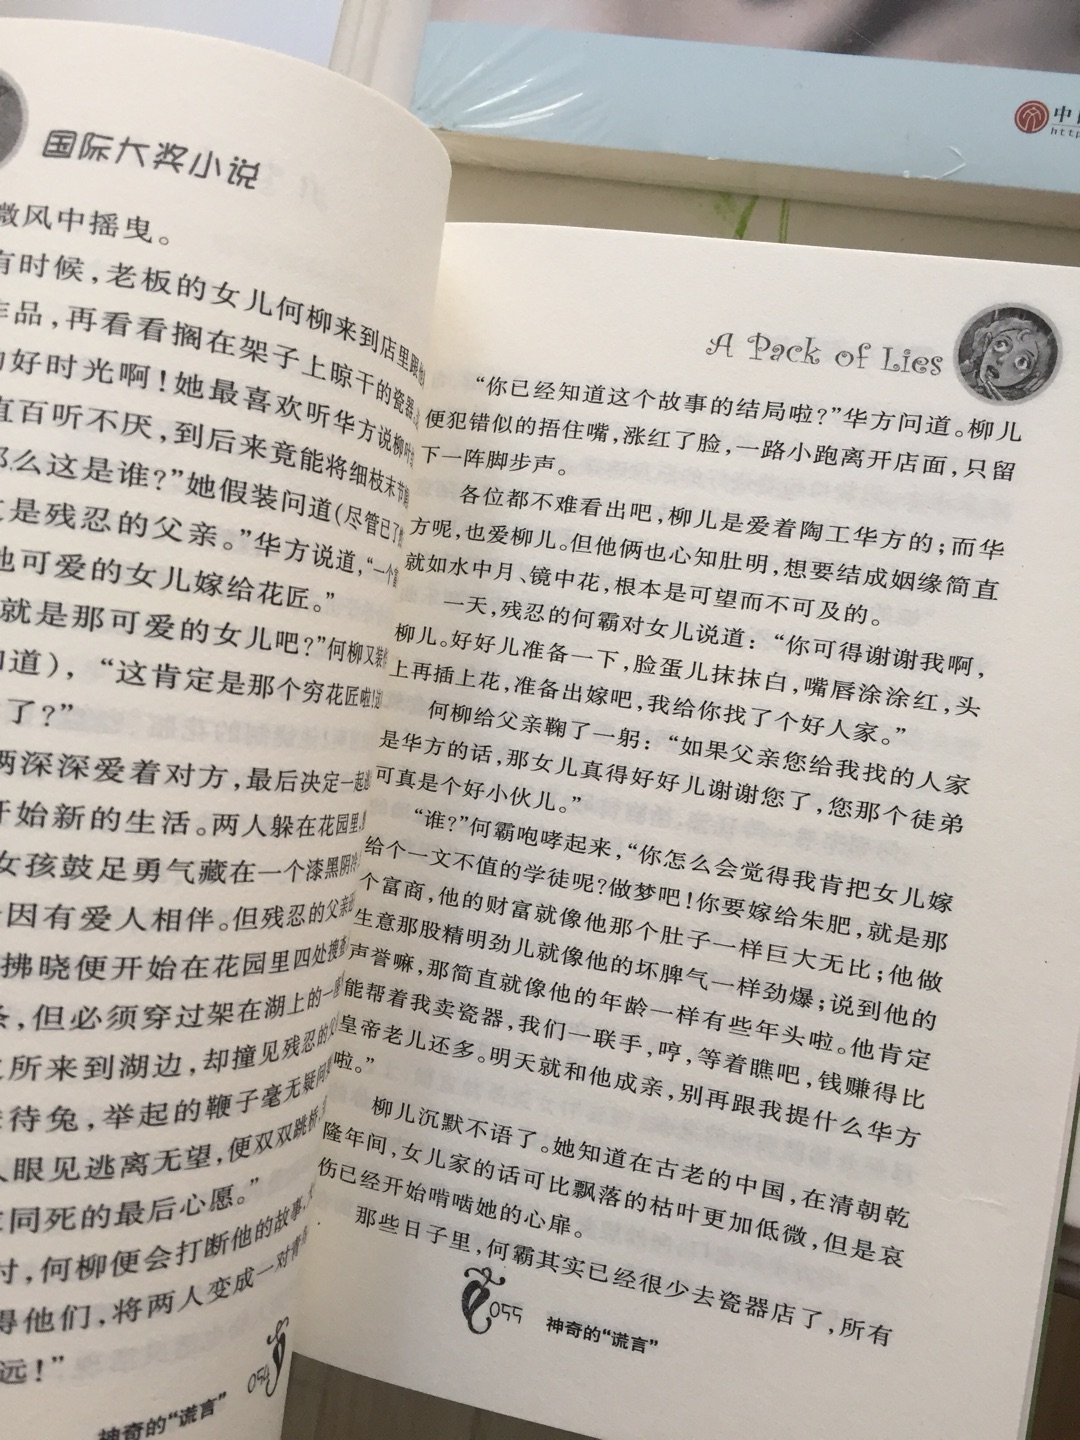 国际大奖小说
微风中摇曳。
有时候，老板的女儿何柳来到店里跟他
作品，再看看搁在架子上晾干的瓷器
的好时光啊！她最喜欢听华方说柳叶
直百听不厌，到后来竟能将细枝末节
那么这是谁？”她假装问道（尽管已了
是残忍的父亲。”华方说道，“一个富
他可爱的女儿嫁给花匠。”
就是那可爱的女儿吧？”何柳又装作
知道），“这肯定是那个穷花匠啦！
了？”
两深深爱着对方，最后决定一起逃
开始新的生活。两人躲在花园里
女孩鼓足勇气藏在一个漆黑阴冷
因有爱人相伴。但残忍的父亲
拂晓便开始在花园里四处搜查
条，但必须穿过架在湖上的一座
所来到湖边，却撞见残忍的父
待兔，举起的鞭子毫无疑问
人眼见逃离无望，便双双跳桥
同死的最后心愿。”
时，何柳便会打断他的故事
得他们，将两人变成一对青
远！”
054
神奇的“谎言”
中
http
A Pack of Lies
“你已经知道这个故事的结局啦？”华方问道。柳儿
便犯错似的捂住嘴，涨红了脸，一路小跑离开店面，只留
下一阵脚步声。
各位都不难看出吧，柳儿是爱着陶工华方的；而华
方呢，也爱柳儿。但他俩也心知肚明，想要结成姻缘简直
就如水中月、镜中花，根本是可望而不可及的。
一天，残忍的何霸对女儿说道：“你可得谢谢我啊，
柳儿。好好儿准备一下，脸蛋儿抹抹白，嘴唇涂涂红，头
上再插上花，准备出嫁吧，我给你找了个好人家。”
何柳给父亲鞠了一躬：“如果父亲您给我找的人家
是华方的话，那女儿真得好好儿谢谢您了，您那个徒弟
可真是个好小伙儿。”
“谁？”何霸咆哮起来，“你怎么会觉得我肯把女儿嫁
给个一文不值的学徒呢？做梦吧！你要嫁给朱肥，就是那
个富商，他的财富就像他那个肚子一样巨大无比；他做
生意那股精明劲儿就像他的坏脾气一样劲爆；说到他的
声誉嘛，那简直就像他的年龄一样有些年头啦。他肯定
能帮着我卖瓷器，我们一联手，哼，等着瞧吧，钱赚得比
皇帝老儿还多。明天就和他成亲，别再跟我提什么华方
啦。”
柳儿沉默不语了。她知道在古老的中国，在清朝乾
隆年间，女儿家的话可比飘落的枯叶更加低微，但是哀
伤已经开始啃啮她的心扉。
那些日子里，何霸其实已经很少去瓷器店了，所有
055
神奇的“谎言”